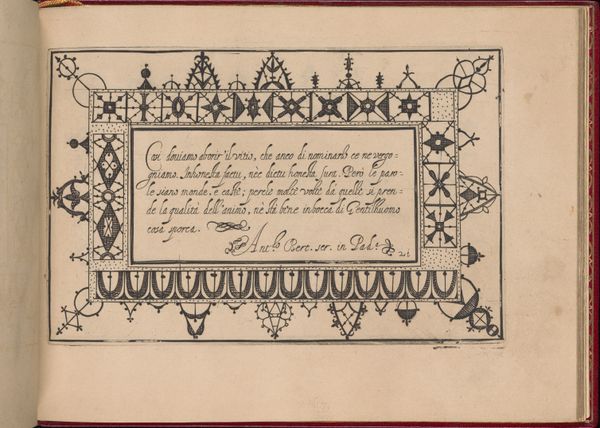 Cosi douiamo aborir' il vitio, che anco di nominarlo ce ne vergo-
gniamo. Inhonesta factu, nec dictu honesta sunt. Però le paro-
le siano monde, e caste; perche molte volte da quelle si pren-
de la qualità dell'animo, nè stà bene in bocca di Gentilhuomo
cosa sporca.
Ant.º Bert. scr. in Pad.ª